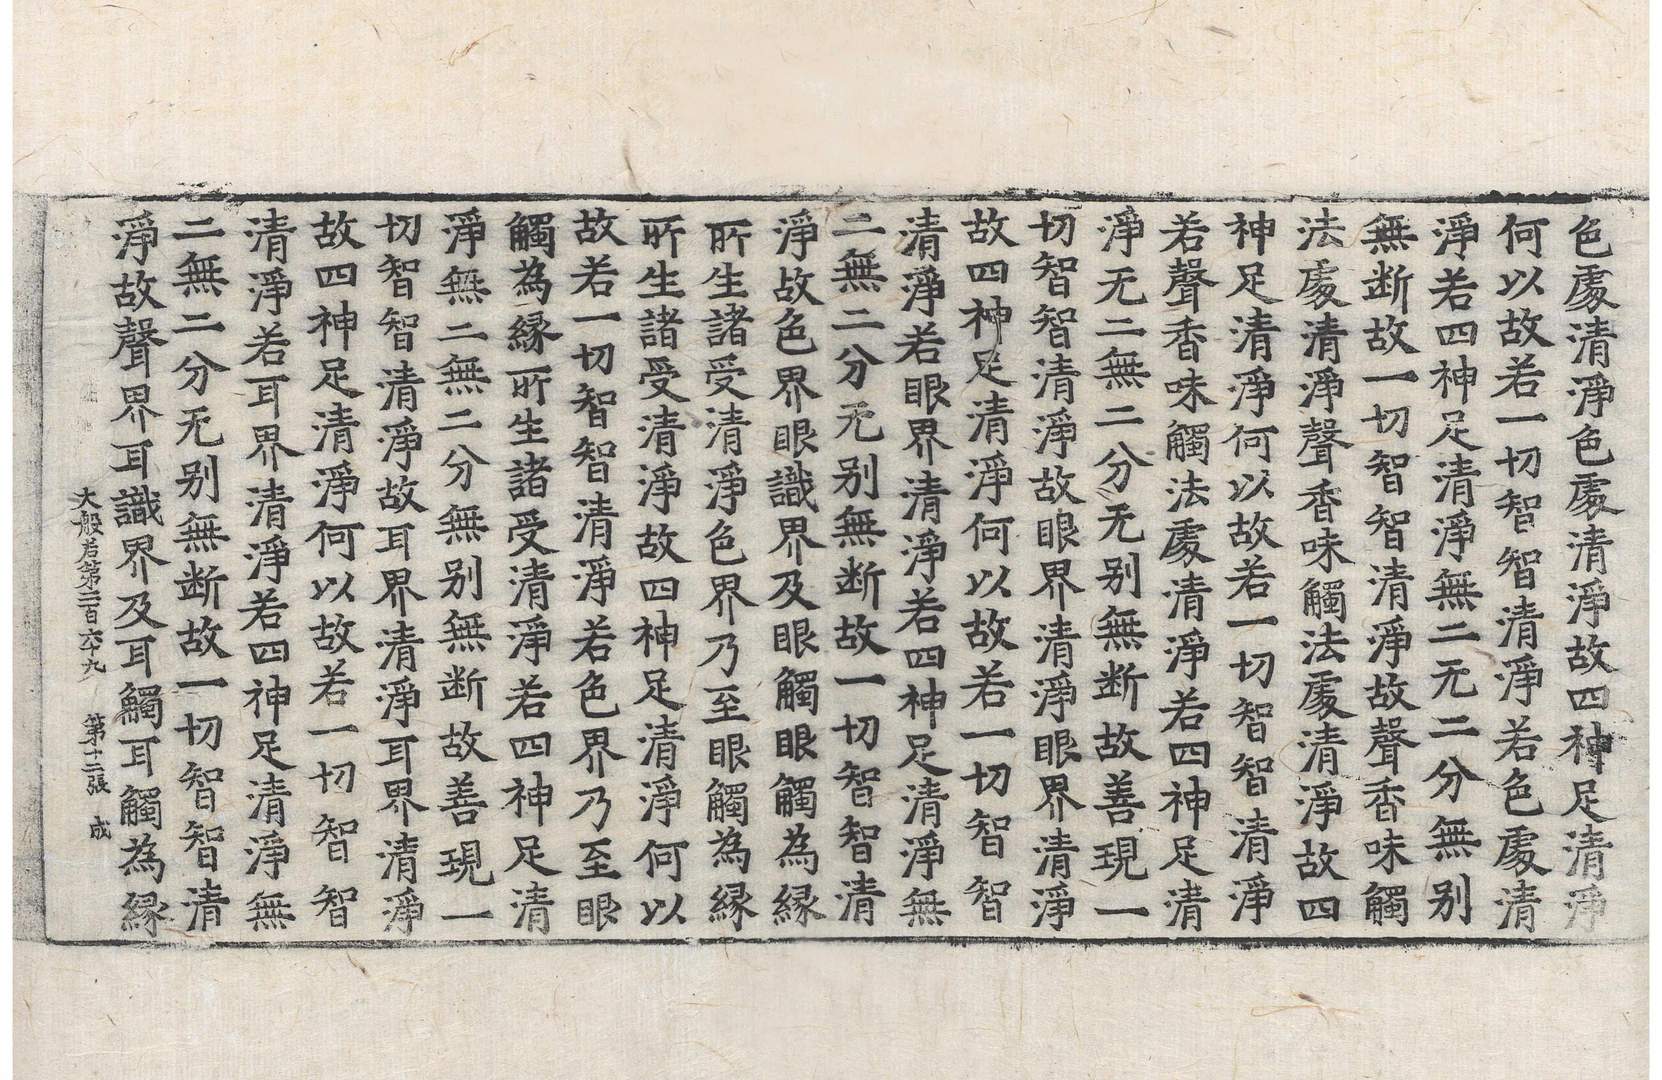 色處清淨色處清淨故四神足清淨
何以故若一切智智清淨若色處清
淨若四神足清淨無二无二分無別
無断故一切智智清淨故聲香味觸
法處清淨聲香味觸法處清淨故四
神足清淨何以故若一切智智清淨
若聲香味觸法處清淨若四神足清
淨无二無二分无別無断故善現一
切智智清淨故眼界清淨眼界清淨
故四神足清淨何以故若一切智智
清淨若眼界清淨若四神足清淨無
二無二分无別無断故一切智智清
淨故色界眼識界及眼觸眼觸為緣
所生諸受清淨色界乃至眼觸為緣
所生諸受清淨故四神足清淨何以
故若一切智智清淨若色界乃至眼
觸為緣所生諸受清淨若四神足清
淨無二無二分無別無断故善現一
切智智清淨故耳界清淨耳界清淨
故四神足清淨何以故若一切智智
清淨若耳界清淨若四神足清淨無
二無二分无別無断故一切智智清
淨故聲界耳識界及耳觸耳觸為緣
大般若第二百六十九 第十二張 成